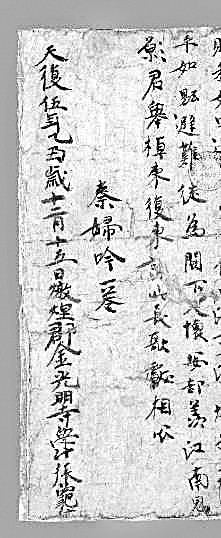 平如砥避難徒為闕下人懷安却羨江南鬼
願君舉棹東復東詠此長歌獻相公
秦婦吟一卷
天復伍年乙丑歲十二月十五日燉煌郡金光明寺學仕張龜